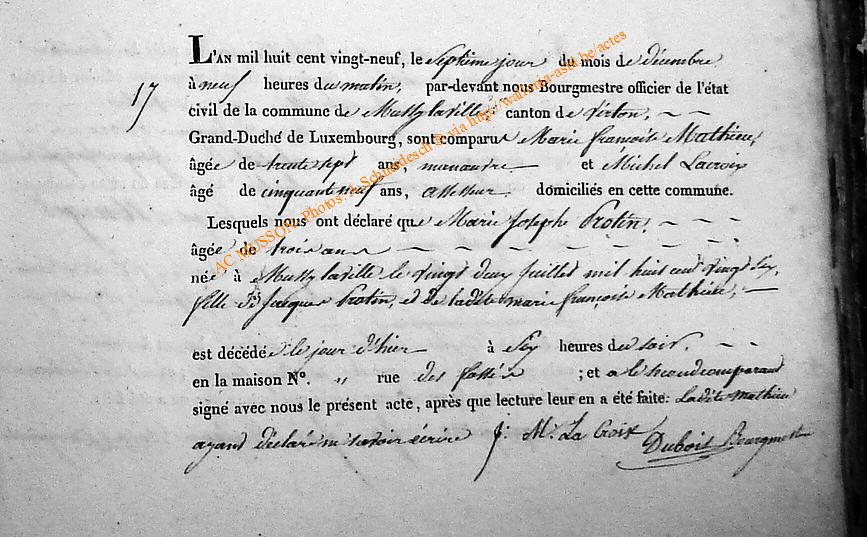 17
L'AN mil huit cent vingt-neuf, le Septième jour du mois de décembre
à neuf heures du matin, par-devant nous Bourgmestre officier de l'état
civil de la commune de Mussy laville canton de virton, ~ ~
Grand-Duché de Luxembourg, sont comparus Marie françoise Mathieu,
âgée de trente sept ans, manœuvre — et Michel Lacroix
âgé de cinquante neuf ans, assesseur domiciliés en cette commune.
Lesquels nous ont déclaré que Marie Josephe Protin, ~ ~ ~
âgée de trois ans ~ ~ ~ ~ ~ ~ ~ ~
née à Mussy laville le vingt deux juillet mil huit cent vingt six,
fille de Jacques Protin, et de ladite marie françoise Mathieu, —
est décédée le jour d'hier — à Six heures du soir. ~ ~
en la maison N°. " rue des fossés ; et a le second comparant
signé avec nous le présent acte, après que lecture leur en a été faite: Ladite mathieu
ayant déclaré ne savoir écrire J: M. La Croix
Dubois Bourgmestre
AC MUSSON - Photos: Schmidesch © via http://wallonia-asbl.be/actes